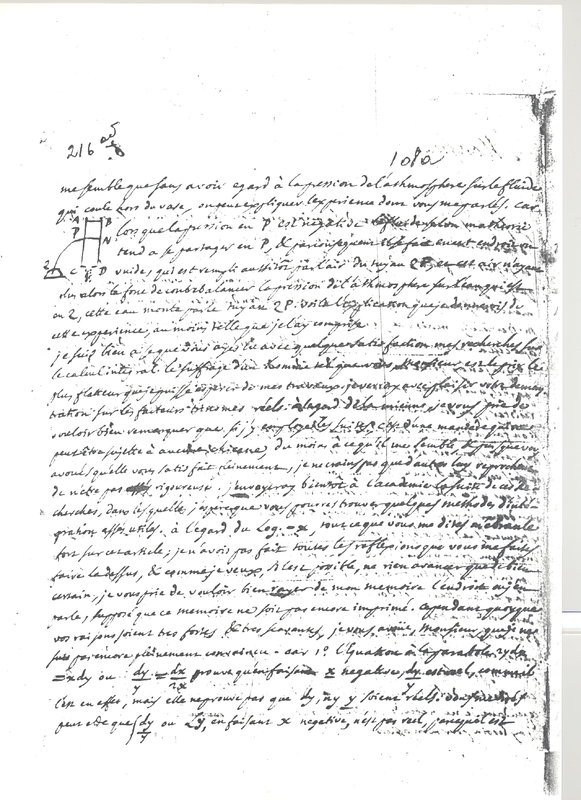 216
1080
me semble que sans avoir egard à la pression de l'athmosphere sur le fluide
qui coule hors du vase, on peut expliquer l'experience dont vous me parlés. Car
A B lorsque la pression en P est negative
P N tend a se partager en P, & par consequent
2 C D vuide, qui est rempli aussitôt par l'air du tuyau 2P,
alors la force de contrebalancer la pression de l'athmosphere sur l'eau qui est
en 2, cette eau monte par le tuyau 2P. voila l'explication que je donnerois de
cette experience, au moins telle que je l'ay comprise.
je suis bien aise que vous ayés lu avec quelque satisfaction mes recherches sur
le calcul integral. le suffrage d'un homme tel que vous, Monsieur, est le prix le
plus flatteur que je puisse esperer de mes travaux. je verrai avec plaisir votre demons
tration sur les facteurs trinomes réels. à l'égard de la mienne, je vous prie de
vouloir bien remarquer que si j'y employe les suites, c'est d'une maniere qui ne
peut etre sujette à aucune chicane, du moins à ce qu'il me semble,
avoués qu'elle vous satisfait pleinement, je ne crains pas que d'autres luy reprochent
de n'etre pas rigoureuse. j'envoyeray bientôt à l'academie la suite de ces re
cherches, dans lesquelles j'espere que vous pourrés trouver quelques methodes d'inté-
gration assés utiles. à l'egard du Log. -x, tout ce que vous me dites m'ebranle
fort sur cet article, je n'avois pas fait toutes les reflexions que vous me faites
faire la dessus, & comme je veux, s'il est possible, ne rien avancer que de bien
certain, je vous prie de vouloir bien rayer de mon memoire l'endroit où j'en
parle, supposé que ce memoire ne soit pas encore imprimé. Cependant quoyque
vos raisons soient tres fortes & tres scavantes, je vous avoue, Monsieur, que je ne
suis pas encore pleinement convaincu. car 1° l'Equation à la parabole
= xdy ou dy/y = dx/2x prouve qu'en faisant x negative, dy est reel, comme il
l'est en effet, mais elle ne prouve pas que dy, ny y soient réels.
peut etre que ∫dy/y ou Ly, en faisant x negative, n'est pas reel, parce qu'il est